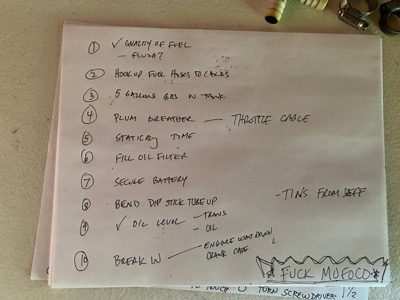 ① ✓ QUALITY OF FUEL
- FLUSH?
② HOOK UP FUEL HOSES TO CARBS
③ 5 GALLONS GAS IN TANK
④ PLUM BREATHER — THROTTLE CABLE
⑤ STATICALLY TIME
⑥ FILL OIL FILTER
⑦ SECURE BATTERY
⑧ BEND DIP STICK TUBE UP
- TINS FROM JEFF
⑨ ✓ OIL LEVEL - TRANS
- OIL
⑩ BREAK IN — ENGINE DOWN
CRANK CASE
FUCK MOFOCO
TURN SCREWDRIVER 1 1/2